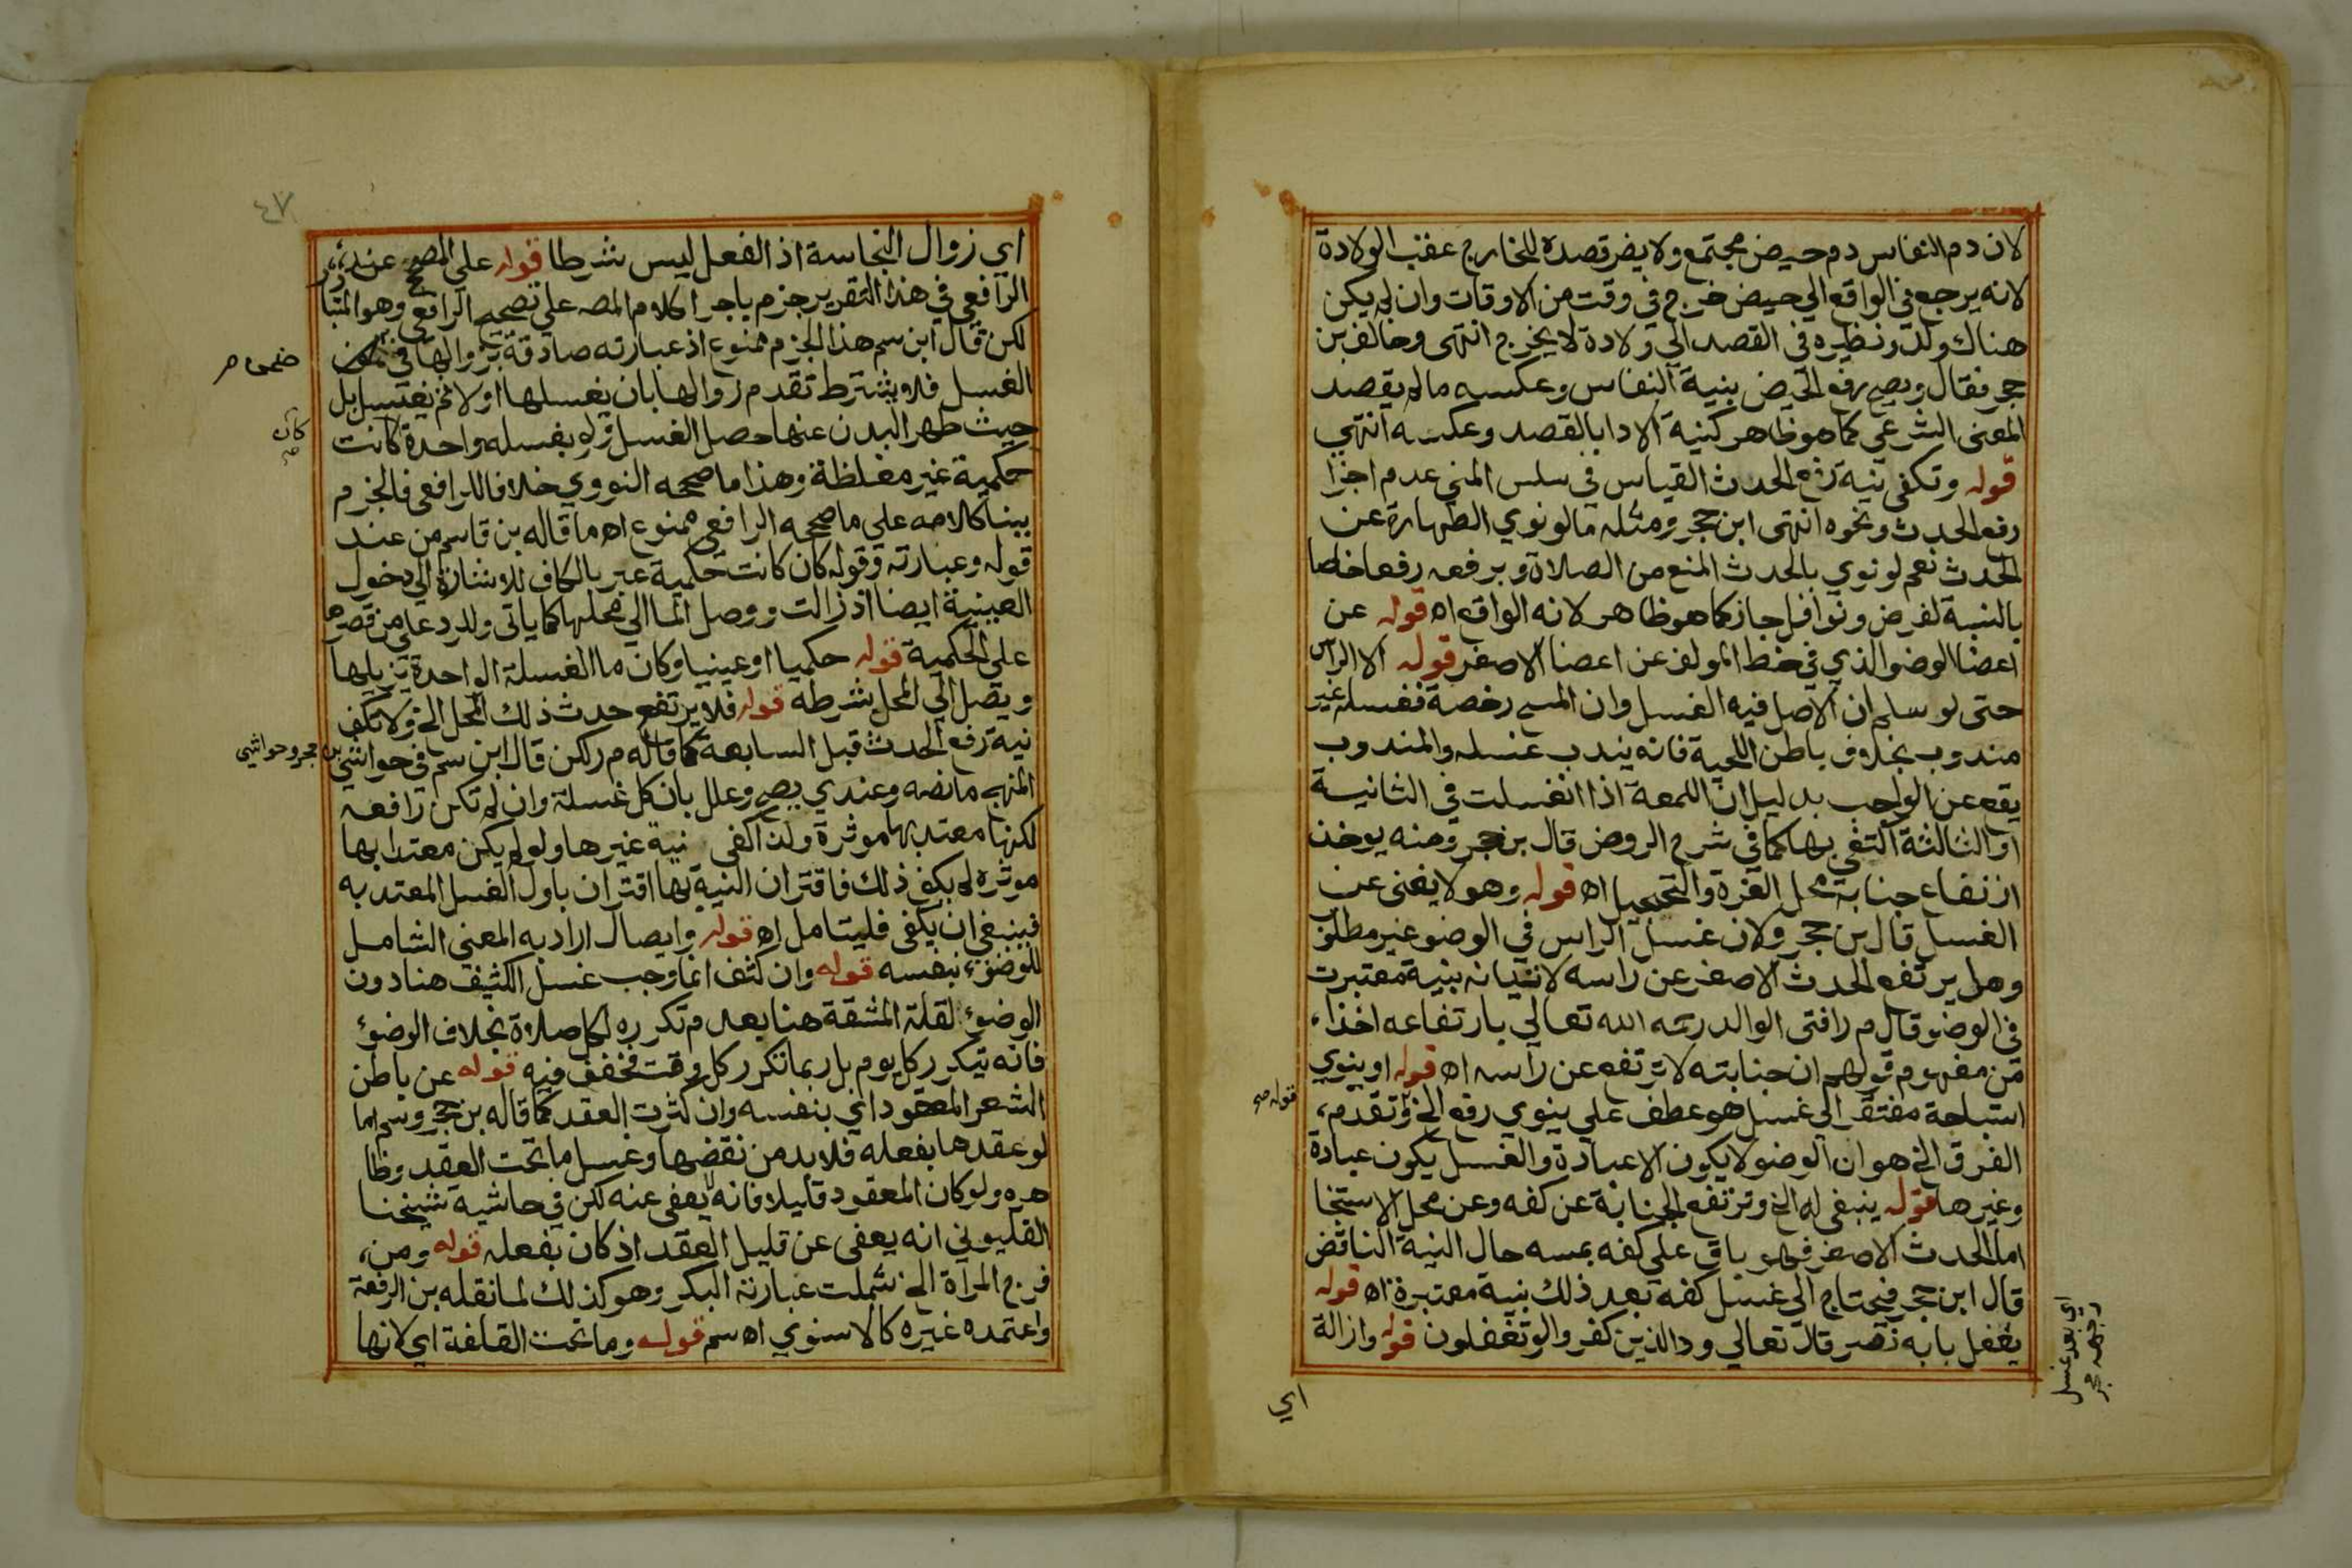 لان دم النفاس دم حيض مجتمع ولا يضر قصده للخارج عقب الولادة
لانه يرجع في الواقع الي حيض خرج في وقت من الاوقات وان لم يكن
هناك ولد ونظيره في القصد الي ولادة لا يخرج انتهى وخالف بن
حجر فقال ويصح رفع الحيض بنية النفاس وعكسه مالم يقصد
المعنى الشرعي كما هو ظاهر كنية الادا بالقصد وعكسه انتهي
قوله وتكفي نية رفع الحدث القياس في سلس المني عدم اجزا
رفع الحدث ونحوه انتهى ابن حجر ومثله مالو نوي الطهارة عن
الحدث نعم لو نوي بالحدث المنع من الصلاة وبرفعه رفعا خاصا
بالنسبة لفرض ونوافل جاز كما هو ظاهر لانه الواقع اه قوله عن
اعضا الوضو الذي في خط المولف عن اعضا الاصغر قوله الا الراس
حتى لو سلم ان الاصل فيه الغسل وان المسح رخصة فغسله غير
مندوب بخلاف باطن اللحية فانه يندب غسله والمندوب
يقع عن الواجب بدليل ان اللمعة اذا انغسلت في الثانية
او الثالثة اكتفي بها كما في شرح الروض قال بن حجر ومنه يوخذ
ارتفاع جنابة محل الغرة والتحجيل اه قوله وهو لا يغنى عن
الغسل قال بن حجر ولان غسل الراس في الوضو غير مطلوب
وهل يرتفع الحدث الاصغر عن راسه لاتيانه بنية معتبرت
في الوضو قال م ر افتى الوالد رحمه الله تعالي بارتفاعه اخذا
من مفهوم قولهم ان جنابته لا ترتفع عن راسه اه قوله او ينوي
استباحة مفتقر الي غسل هو عطف علي ينوي رفع الخ وتقدم
قوله صح
الفرق الخ هو ان الوضو لا يكون الا عبادة والغسل يكون عبادة
وغيرها قوله ينبغي له الخ وترتفع الجنابة عن كفه وعن محل الاستنجا
اما الحدث الاصغر فهو باق علي كفه بمسه حال النية الناقض
قال ابن حجر فيحتاج الي غسل كفه بعد ذلك بنية معتبرة اه قوله
يغفل بابه نصر قال تعالي ود الذين كفروا لو تغفلون قوله وازالة
اي بعد غسل
اي
٤٧
اي زوال النجاسة اذ الفعل ليس شرطا قوله علي المصحح عند
الرافعي في هذا التقرير جزم باجرا كلام المصـ علي تصحيح الرافعي وهو المتبا
لكن قال ابن سم هذا الجزم ممنوع اذ عبارته صادقة بزوالها في
ضمن صح
الغسل فلا يشترط تقدم زوالها بان يغسلها اولا ثم يغتسل بل
حيث طهر البدن عنها حصل الغسل ولو بغسله واحدة كانت
كان صح
حكمية غير مغلظة وهذا ما صححه النووي خلافا للرافعي فالجزم
ببنا كلامه علي ما صححه الرافعي ممنوع اه ما قاله بن قاسم من عند
قوله وعبارته وقوله كان كانت حكمية عبر بالكاف للاشارة الي دخول
العينية ايضا اذ زالت ووصل الما الي محلها كما ياتي ولرد علي من قصرها
علي الحكمية قوله حكميا او عينيا وكان ما الغسلة الواحدة يزيلها
ويصل الي المحل بشرطه قوله فلا يرتفع حدث ذلك المحل الخ ولا تكفي
نية رفع الحدث قبل السابعة كما قاله م ر لكن قال ابن سم في حواشي
بن حجر وحواشي
المنهج ما نصه وعندي يصح وعلل بان كل غسلة وان لم تكن رافعه
لكنها معتد بها موثرة ولذا كفي نية غيرها ولو لم يكن معتدا بها
موثره لم يكف ذلك فاقتران النية بها اقتران باول الغسل المعتد به
فينبغي ان يكفي فليتامل اه قوله وايصال اراد به المعني الشامل
للوضوء بنفسه قوله وان كثف انما وجب غسل الكثيف هنا دون
الوضوء لقلة المشقة هنا بعدم تكرره لكل صلاة بخلاف الوضوء
فانه يتكرر كل يوم بل ربما تكرر كل وقت فخفف فيه قوله عن باطن
الشعر المعقود اي بنفسه وان كثرت العقد كما قاله بن حجر وسم اما
لو عقدها بفعله فلا بد من نقضها وغسل ما تحت العقد وظا
هره ولو كان المعقود قليلا فانه لا يعفى عنه لكن في حاشية شيخنا
القليوبي انه يعفى عن قليل العقد اذ كان بفعله قوله ومن
فرج المراة الخ شملت عبارته البكر وهو كذلك لما نقله بن الرفعة
واعتمده غيره كالاسنوي اه سم قوله وما تحت القلفة اي لانها